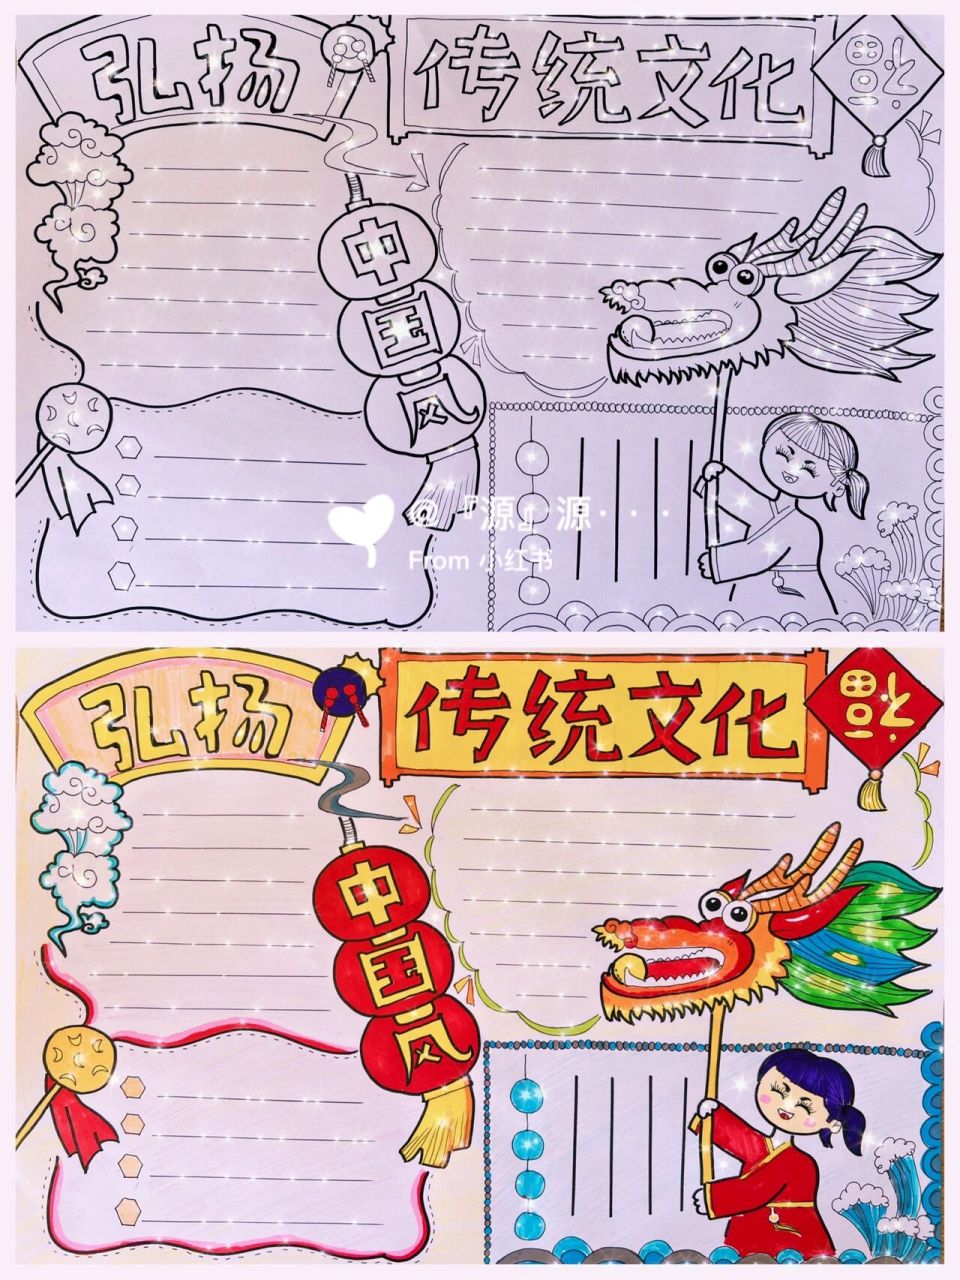 弘扬
传统文化
福
中
国
风
@『源』源· · · ·
From 小红书
弘扬
传统文化
福
中
国
风